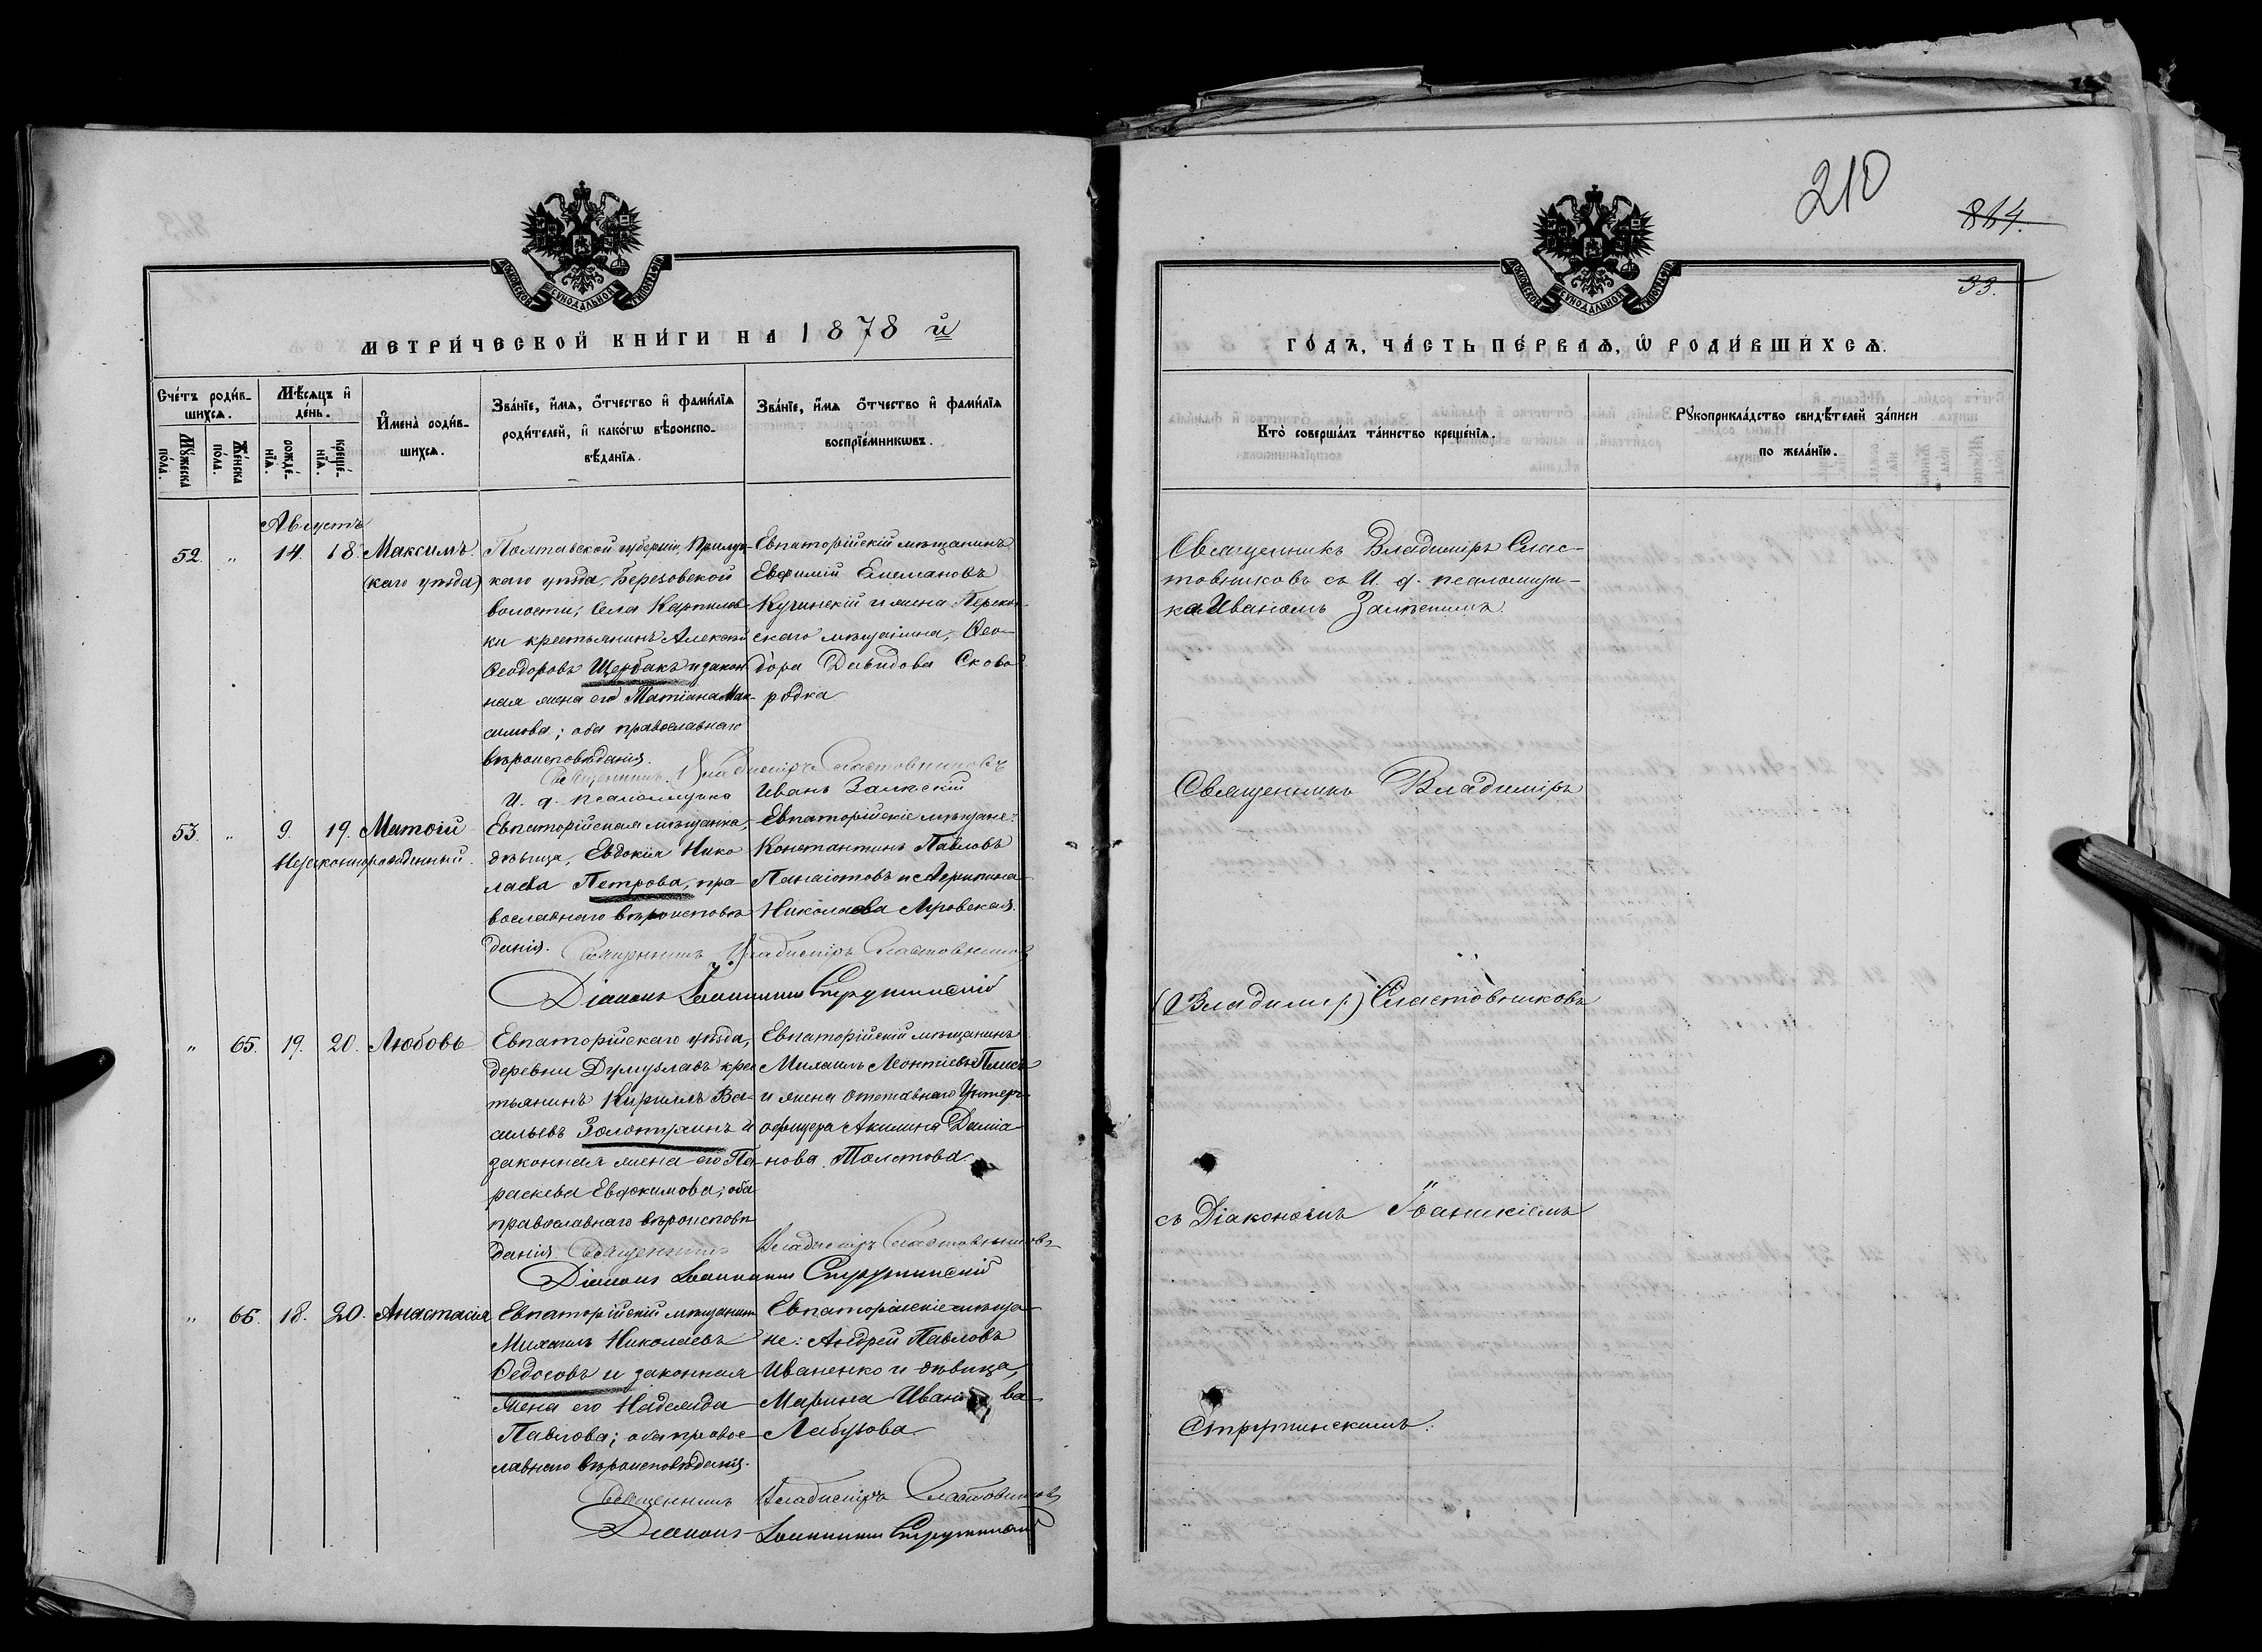 210
814.
33.
МОСКОВСКОЙ СѴНОДАЛЬНОЙ ТИПОГРАФІИ
МЕТРИ́ЧЕСКОЙ КНИ́ГИ НА 1878 й
Сче́тъ роди́в-
шихсѧ.
Мꙋ́жеска по́ла.
Же́нска по́ла.
Мѣ́сѧцъ и҆ де́нь.
рожде́-нїѧ.
креще́-нїѧ.
И҆мена̀ роди́в-
шихсѧ.
Зва́нїе, и҆́мѧ, ѻ҆́тчество и҆ фами́лїѧ
роди́телей, и҆ како́гѡ вѣроиспо-
вѣ́данїѧ.
Зва́нїе, и҆́мѧ ѻ҆́тчество и҆ фами́лїѧ
воспрїе́мникѡвъ.
Августъ
52. " 14. 18. Максимъ.
(каго уѣзда)
Полтавской губерніи, Прилук-
каго уѣзда, Березовской
волости, села Карпилов
ки крестьянинъ Алексѣй
Ѳеодоровъ Щербакъ и закон
ная жена его Татіана Мак-
симова; оба православнаго
вѣроисповѣданія.
Евпаторійскій мѣщанинъ
Евфимій
Кучинскій и жена Перекоп-
скаго мѣщанина, Ѳео-
дора Давидова Сково
родка
Священникъ Владиміръ Сластовниковъ
И. д. псаломщика Иванъ
53. " 9. 19. Матѳій
Незаконнорожденный.
Евпаторійская мѣщанка,
дѣвица, Евдокія Нико
лаева Петрова, пра-
вославнаго вѣроисповѣ
данія.
Евпаторійскіе мѣщане:
Константинъ Павловъ
Панаіотовъ и Агрипина
Николаева
Священникъ Владиміръ Сластовниковъ
Діаконъ Іоанникій Струтинскій
" 65. 19. 20. Любовь
Евпаторійскаго уѣзда,
деревни Думузлавъ крес
тьянинъ Кириллъ Ва-
сильевъ Золотухинъ и
законная жена его Па-
раскева Евдокимова; оба
православнаго вѣроисповѣ
данія.
Евпаторійскій мѣщанинъ
Михаилъ Леонтіевъ
и жена отставнаго Унтеръ-
офицера Акилина Даміа-
нова Толстова.
Священникъ Владиміръ Сластовниковъ
Діаконъ Іоанникій Струтинскій
" 66. 18. 20. Анастасія
Евпаторійскій мѣщанинъ
Михаилъ Николаевъ
Ѳедосовъ и законная
жена его Надежда
Павлова; оба правос-
лавнаго вѣроисповѣданія.
Евпаторійскіе мѣща-
не: Андрей Павловъ
Иваненко и дѣвица,
Марина Иванова
Лабузова.
Священникъ Владиміръ Сластовниковъ
Діаконъ Іоанникій Струтинскій
МОСКОВСКОЙ СѴНОДАЛЬНОЙ ТИПОГРАФІИ
ГО́ДЪ, ЧА́СТЬ ПЕ́РВАѦ, Ѽ РОДИ́ВШИХСѦ.
Кто̀ соверша́лъ та́инство креще́нїѧ.
Рꙋкоприкла́дство свидѣ́телей за́писи
по жела́нїю.
Священникъ Владиміръ Слас-
товниковъ съ И. д. псаломщи-
ка Иваномъ
Священникъ Владиміръ
(Владимір) Сластовниковъ
съ Діакономъ Іоанникіемъ
Струтинскимъ.